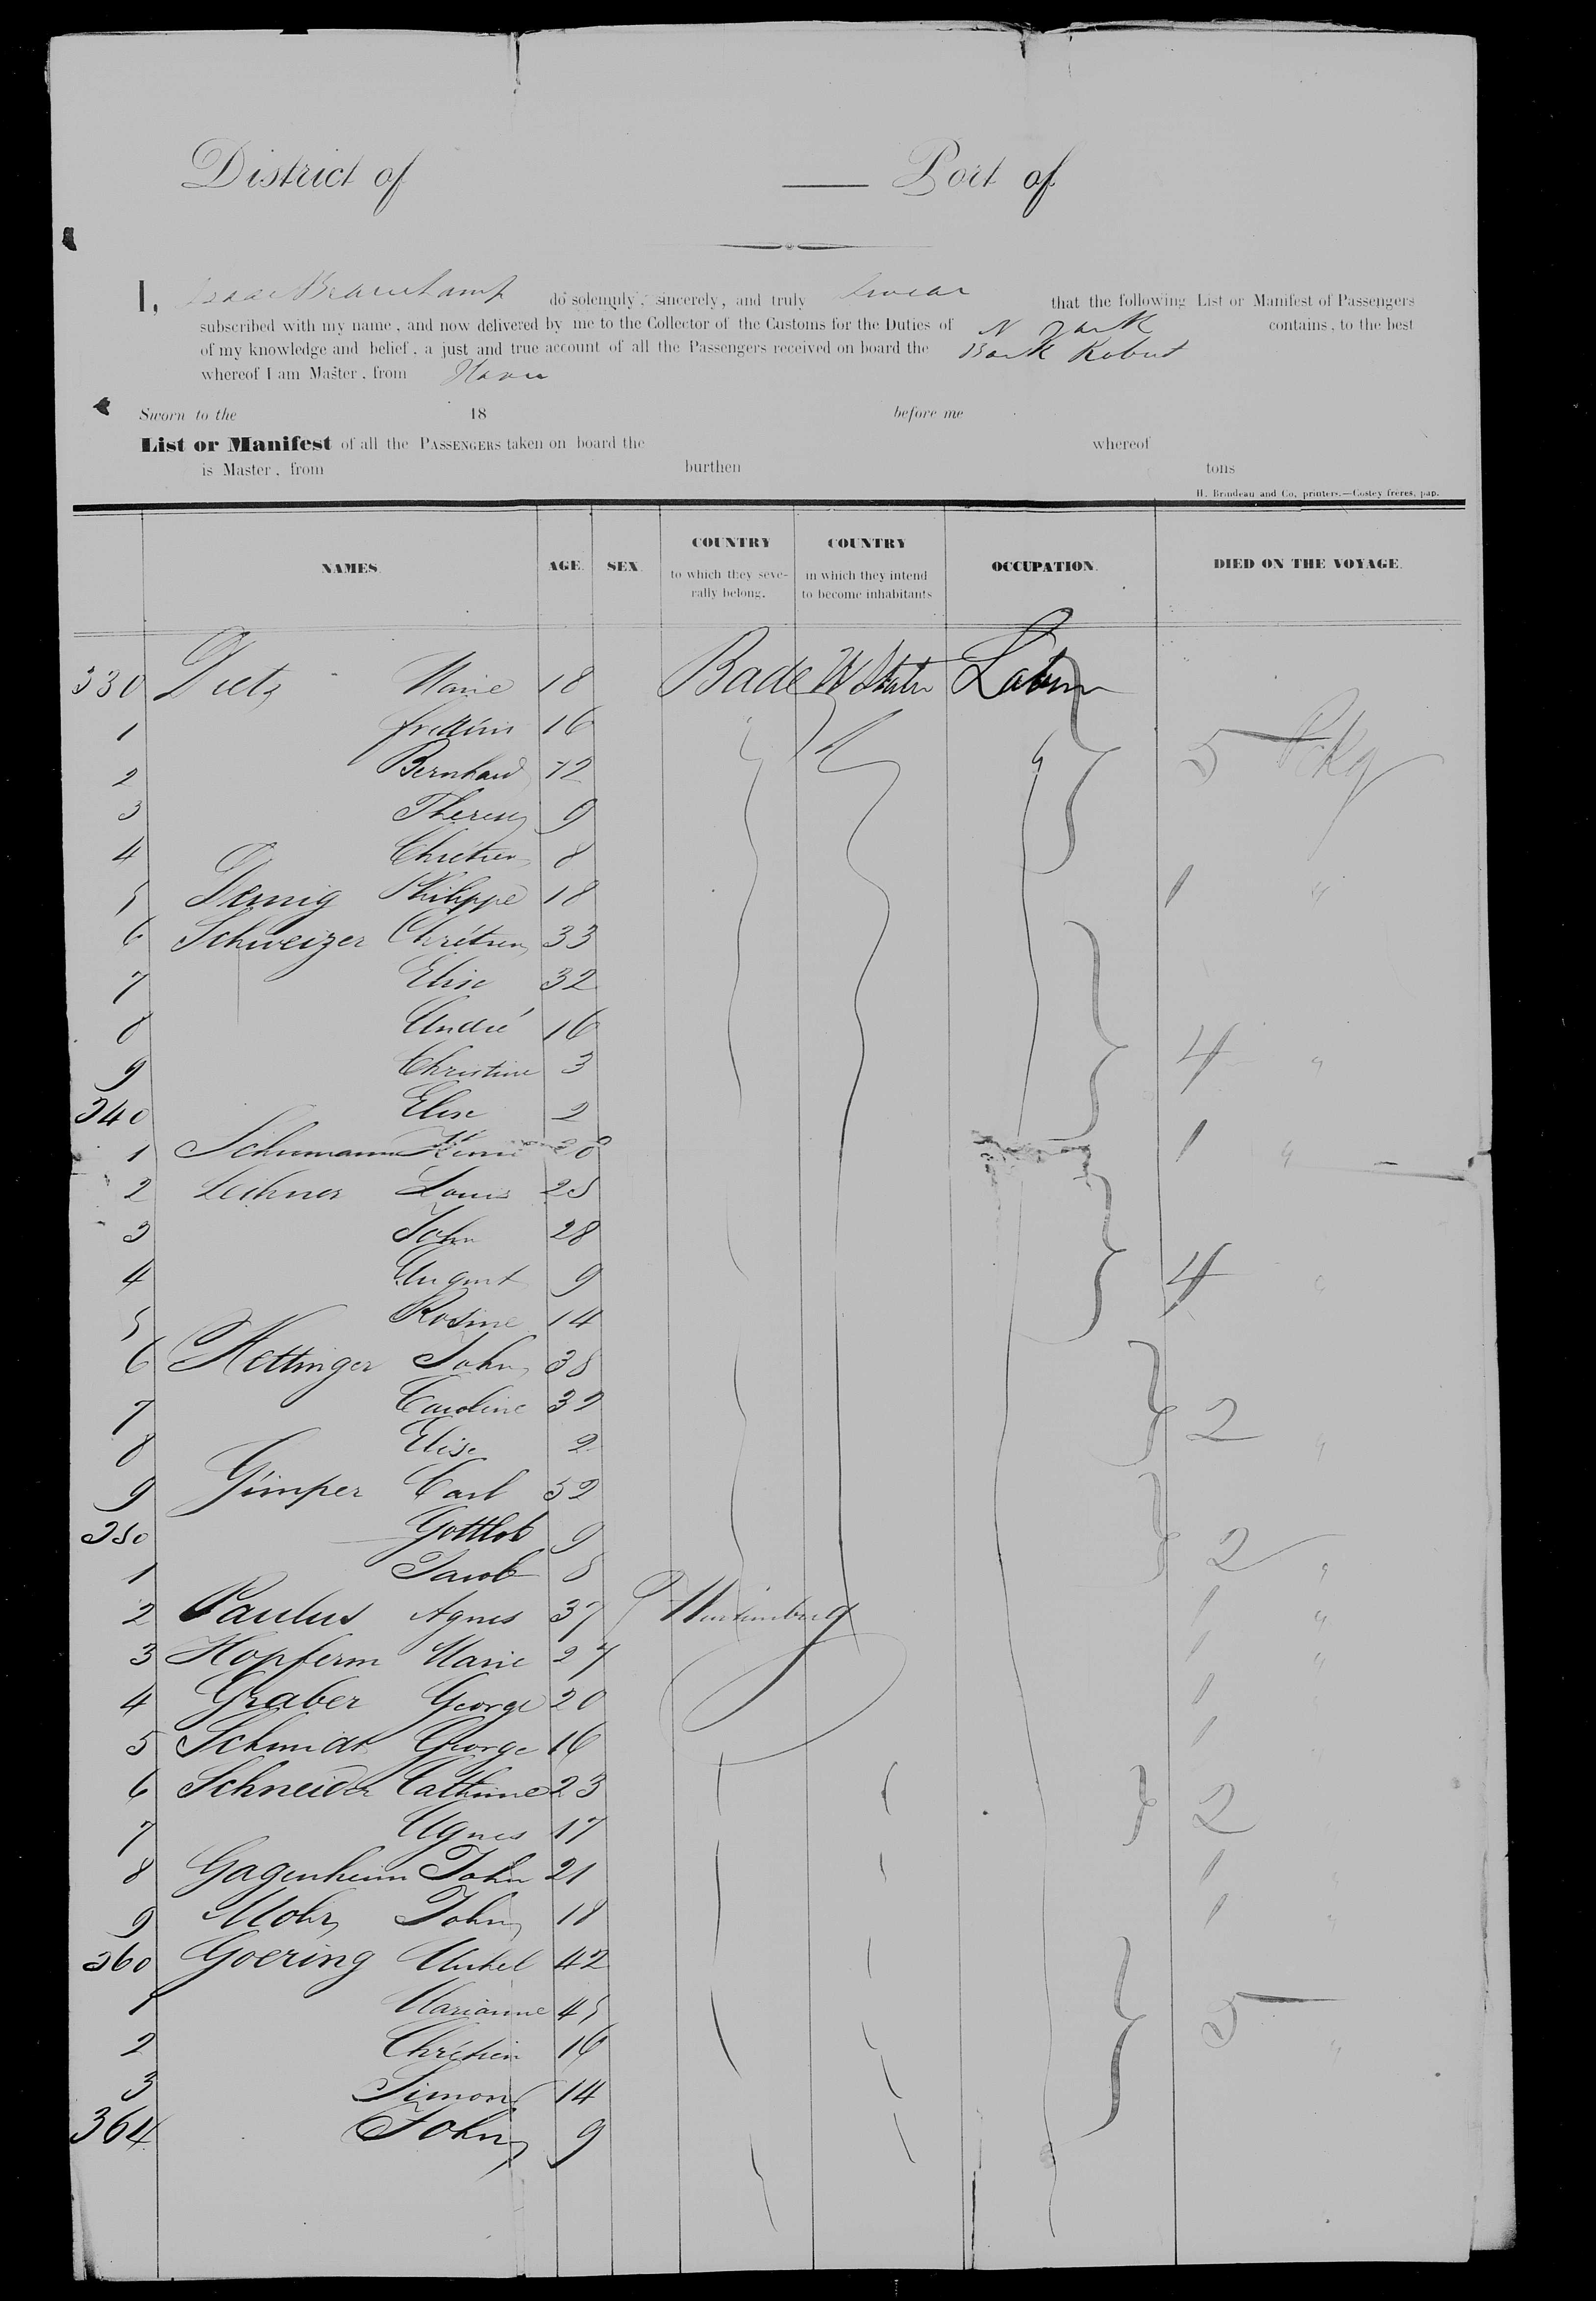 District of — Port of
I, Isaac Beauchamp do solemnly, sincerely, and truly swear that the following List or Manifest of Passengers
subscribed with my name, and now delivered by me to the Collector of the Customs for the Duties of N York contains, to the best
of my knowledge and belief, a just and true account of all the Passengers received on board the Bark
whereof I am Master, from Havre
Sworn to the 18 before me
List or Manifest of all the PASSENGERS taken on board the whereof
is Master, from burthen tons
H. Brindeau and Co, printers.—Costey frères, pap.
NAMES. AGE. SEX. COUNTRY to which they severally belong. COUNTRY in which they intend to become inhabitants OCCUPATION. DIED ON THE VOYAGE.
330 Dietz Marie 18 Bade
1 16 5 Pkg
2 Bernhard 12
3 9
4 Chrétien 8
5 Philippe 18 1 "
6 Schweizer Chrétien 33
7 Elise 32
8 André 16
9 Christine 3 4 "
340 Elise 2
1 Schumann 1 "
2 Lechner Louis 25
3 John 28
4 August 9 4 "
5 Rosine 14
6 Hettinger John 38
7 Caroline 32 2
8 Elise 2 "
9 Gimper Carl 52
350 Gottlob 9 2 "
1 Jacob 8
2 Paulus Agnes 37 Wurtemburg 1 "
3 Hopferm Marie 27 1 "
4 Graber George 20 1
5 Schmidt George 16 1
6 Schneider Catherine 23 2
7 Agnes 17
8 Gagenheim John 21 1 "
9 Mohr John 18 1 "
360 Goering Michel 42
1 Marianne 45 5
2 Chrétien 16 "
3 Simon 14
364 John 9